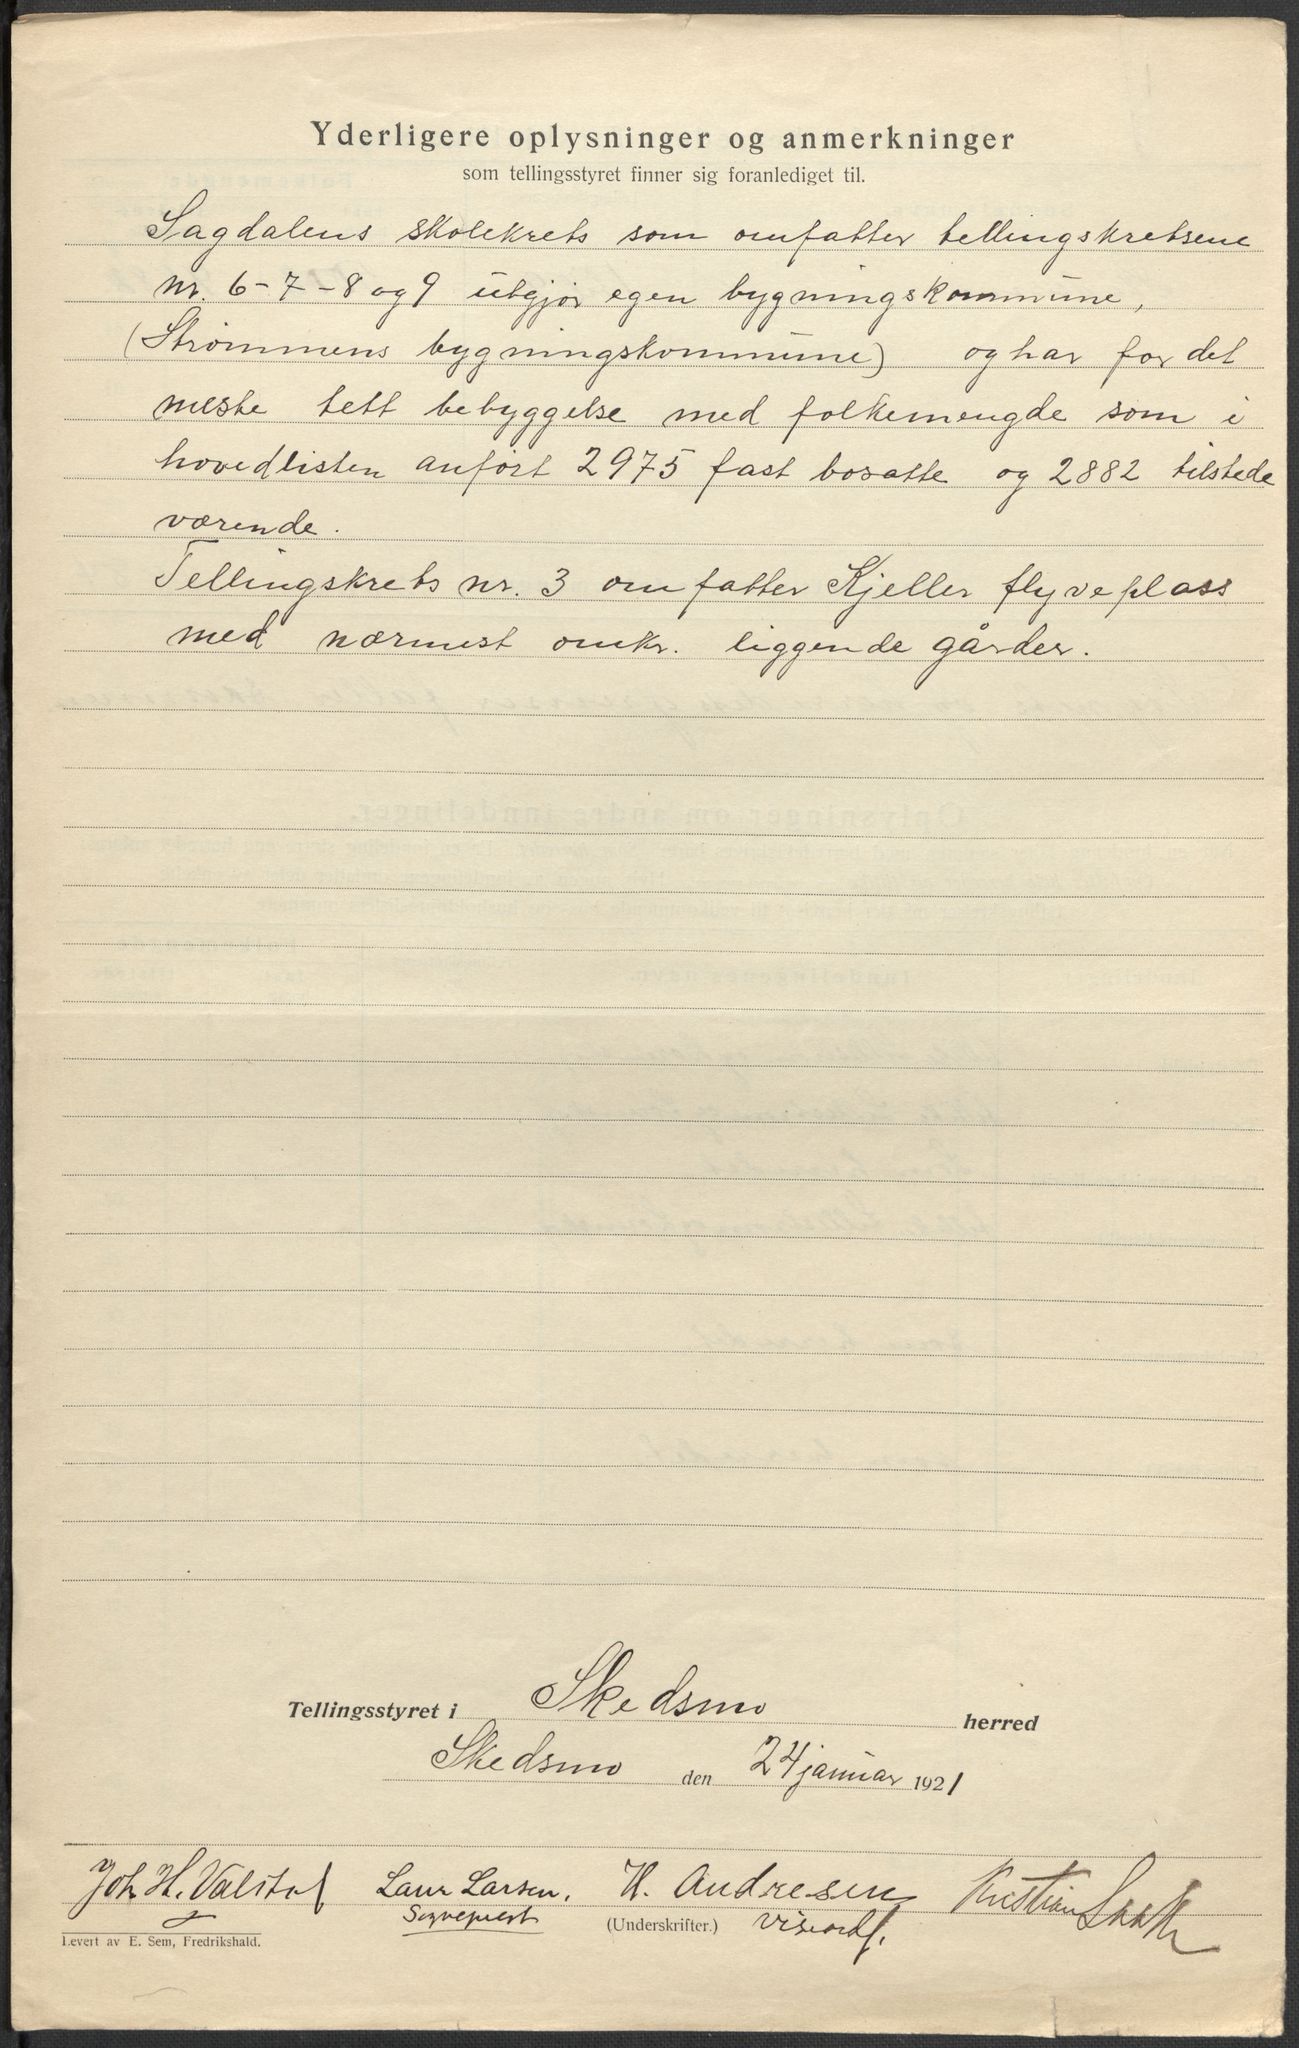 Yderligere oplysninger og anmerkninger
som tellingsstyret finner sig foranlediget til.
Sagdalens skolekrets som omfatter tellingskretsene
nr. 6-7-8 og 9 utgjør egen bygningskommune,
(Strømmens bygningskommune) og har for det
meste tett bebyggelse med folkemengde som i
hovedlisten anført 2975 fast bosatte og 2882 tilstede
værende.
Tellingskrets nr. 3 omfatter Kjeller flyveplass
med nærmest omkr. liggende gårder.
Tellingsstyret i Skedsmo herred
Skedsmo den 24 januar 1921
Joh. H. Valstad Laur Larsen. H. Andresen Kristian
Sogneprest (Underskrifter.) viseordf.
Levert av E. Sem, Fredrikshald.